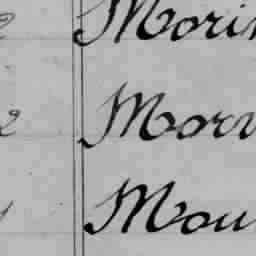 Morin
2 Morv
Mou